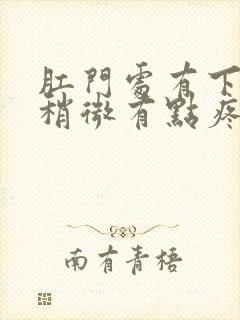 肛門處有下
稍微有點疼
南有青梧